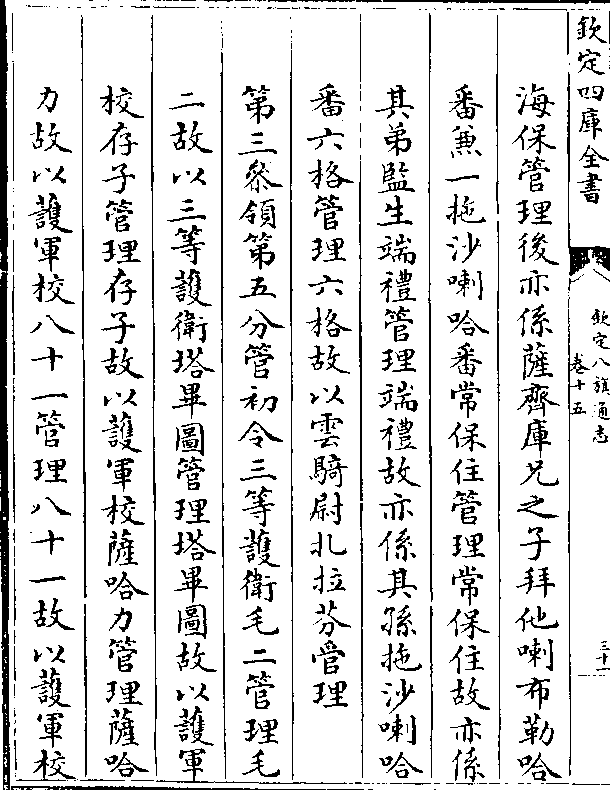 欽定四庫全書
欽定八旗通志
卷十五
三十一
海保管理後亦係薩齊庫兄之子拜他喇布勒哈
番兼一拖沙喇哈番常保住管理常保住故亦係
其弟監生端禮管理端禮故亦係其孫拖沙喇哈
番六格管理六格故以雲騎尉扎拉芬管理
第三叅領第五分管初令三等護衛毛二管理毛
二故以三等護衛塔畢圖管理塔畢圖故以護軍
校存子管理存子故以護軍校薩哈力管理薩哈
力故以護軍校八十一管理八十一故以護軍校